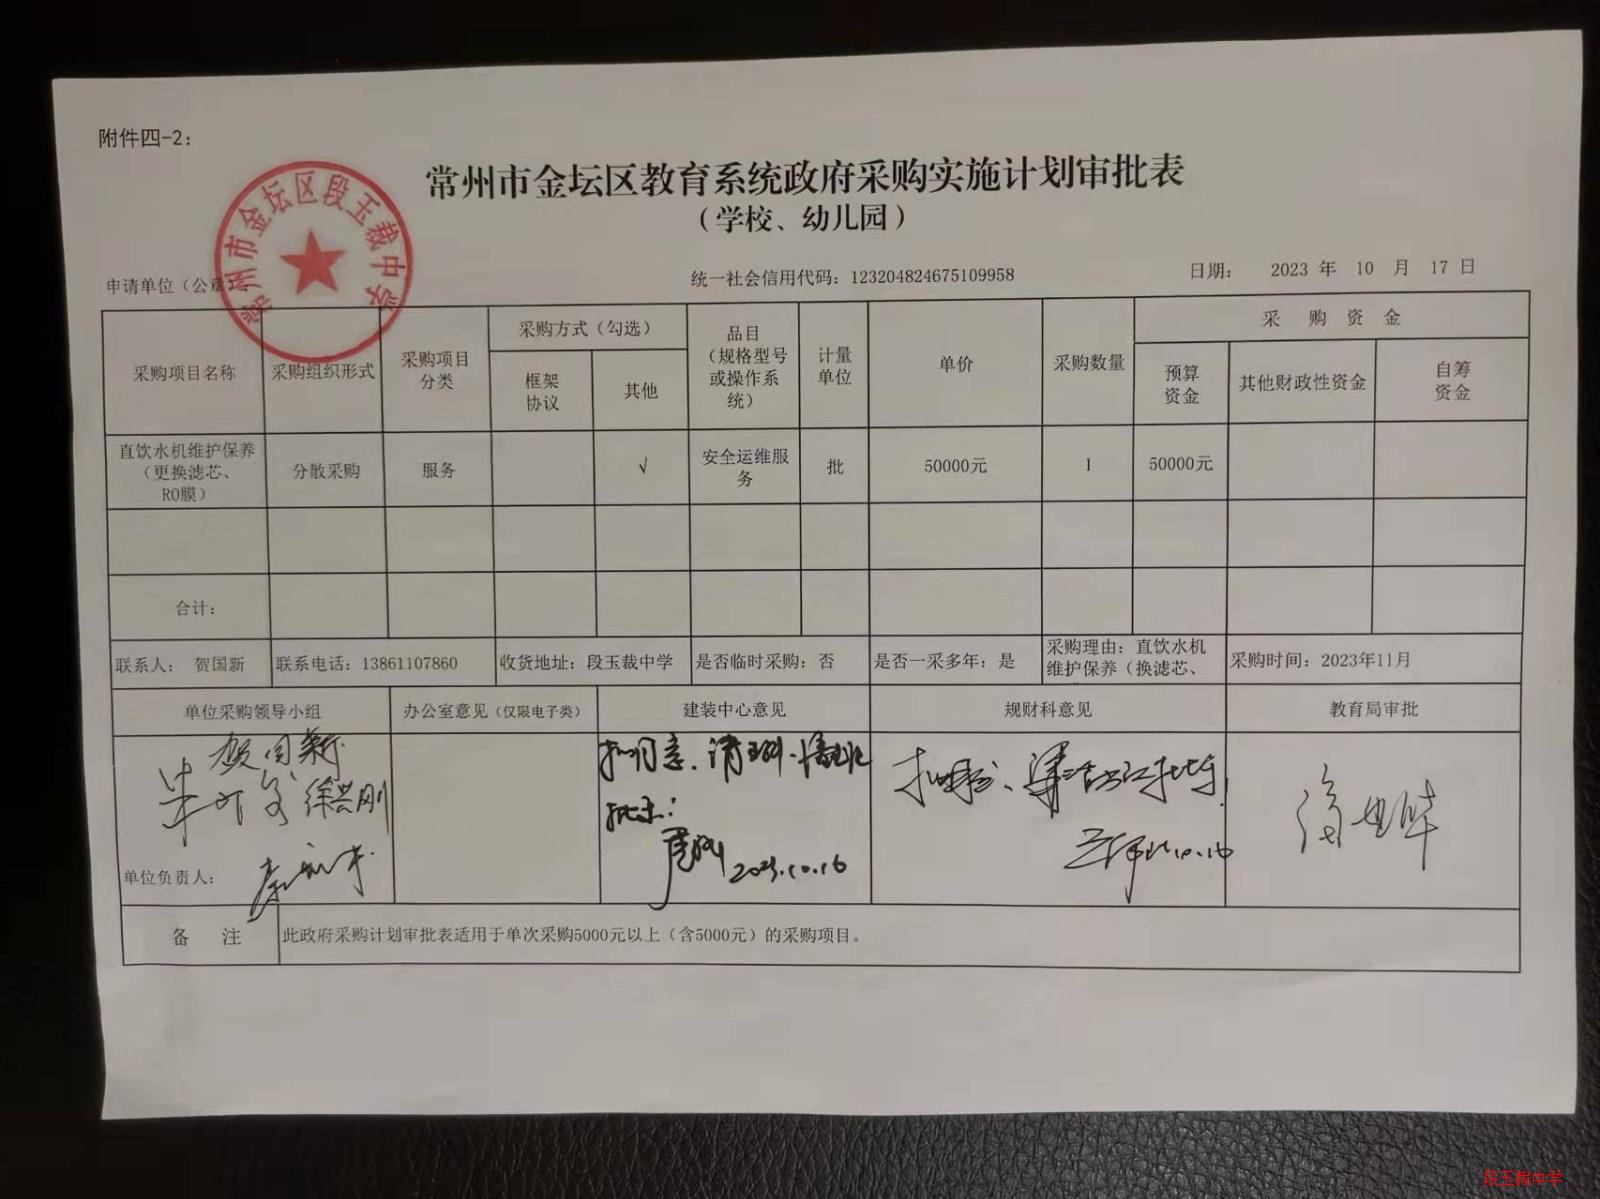 附件四-2：
常州市金坛区教育系统政府采购实施计划审批表
（学校、幼儿园）
常州市金坛区段玉裁中学
申请单位（公章）：
统一社会信用代码：123204824675109958
日期： 2023 年 10 月 17 日
采购项目名称
采购组织形式
采购项目
分类
采购方式（勾选）
框架
协议
其他
品目
（规格型号
或操作系
统）
计量
单位
单价
采购数量
采 购 资 金
预算
资金
其他财政性资金
自筹
资金
直饮水机维护保养
（更换滤芯、
RO膜）
分散采购
服务
√
安全运维服
务
批
50000元
1
50000元
合计：
联系人： 贺国新
联系电话：13861107860
收货地址：段玉裁中学
是否临时采购：否
是否一采多年：是
采购理由：直饮水机
维护保养（换滤芯、
采购时间：2023年11月
单位采购领导小组
办公室意见（仅限电子类）
建装中心意见
规财科意见
教育局审批
贺国新
徐兴刚
单位负责人：
拟同意、请
批示：
2023.10.16
10.16
备 注
此政府采购计划审批表适用于单次采购5000元以上（含5000元）的采购项目。
段玉裁中学